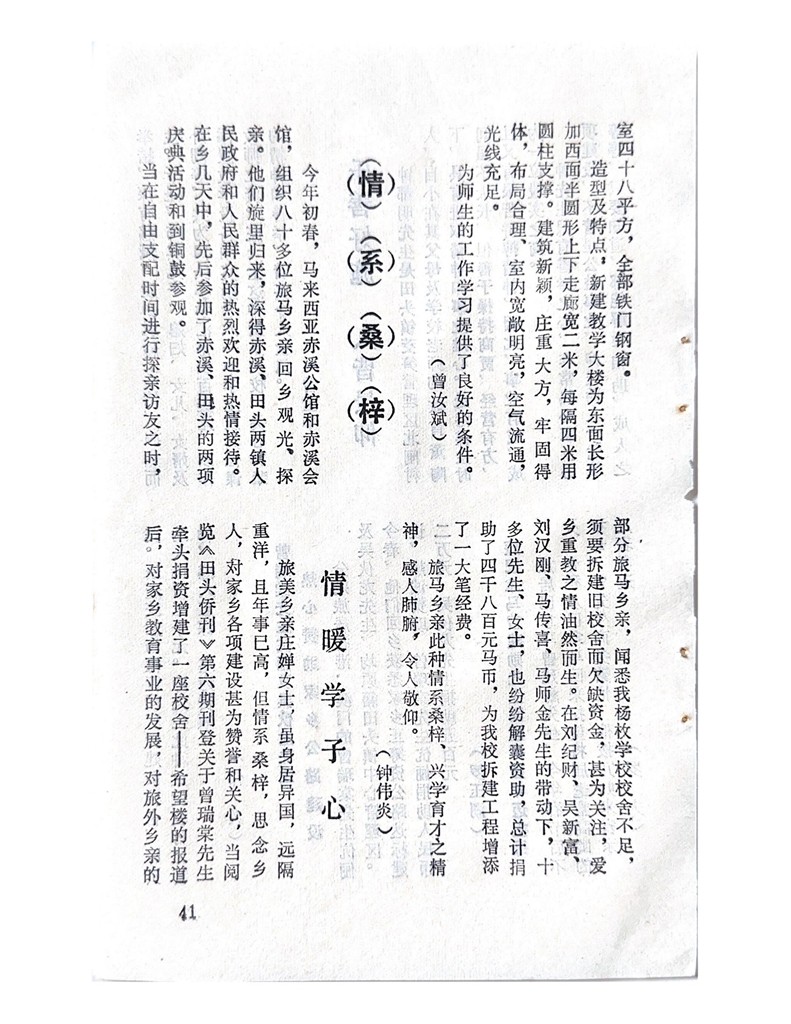 室四十八平方，全部铁门钢窗。
造型及特点，新建教学大楼为东面长形
加西面半圆形上下走廊宽二米，每隔四米用
圆柱支撑。建筑新颖，庄重大方，牢固得
体，布局合理、室内宽敞明亮，空气流通，
光线充足。
为师生的工作学习提供了良好的条件。
（曾汝斌）
（情）（系）（桑）（梓）
今年初春，马来西亚赤溪公馆和赤溪会
馆，组织八十多位旅马乡亲回乡观光、探
亲。他们旋里归来，深得赤溪、田头两镇人
民政府和人民群众的热烈欢迎和热情接待。
在乡几天中，先后参加了赤溪、田头的两项
庆典活动和到铜鼓参观。
当在自由支配时间进行探亲访友之时，
部分旅马乡亲，闻悉我杨枚学校校舍不足，
须要拆建旧校舍而欠缺资金，甚为关注，爱
乡重教之情油然而生。在刘纪财、吴新富、
刘汉刚、马传喜、马师金先生的带动下，十
多位先生、女士，也纷纷解囊资助，总计捐
助了四千八百元马币，为我校拆建工程增添
了一大笔经费。
旅马乡亲此种情系桑梓、兴学育才之精
神，感人肺腑，令人敬仰。
（钟伟炎）
情暖学子心
旅美乡亲庄婵女士，虽身居异国，远隔
重洋，且年事巳高，但情系桑梓，思念乡
人，对家乡各项建设甚为赞誉和关心，当阅
览《田头侨刊》第六期刊登关于曾瑞棠先生
牵头捐资增建了一座校舍——希望楼的报道
后，对家乡教育事业的发展，对旅外乡亲的
41